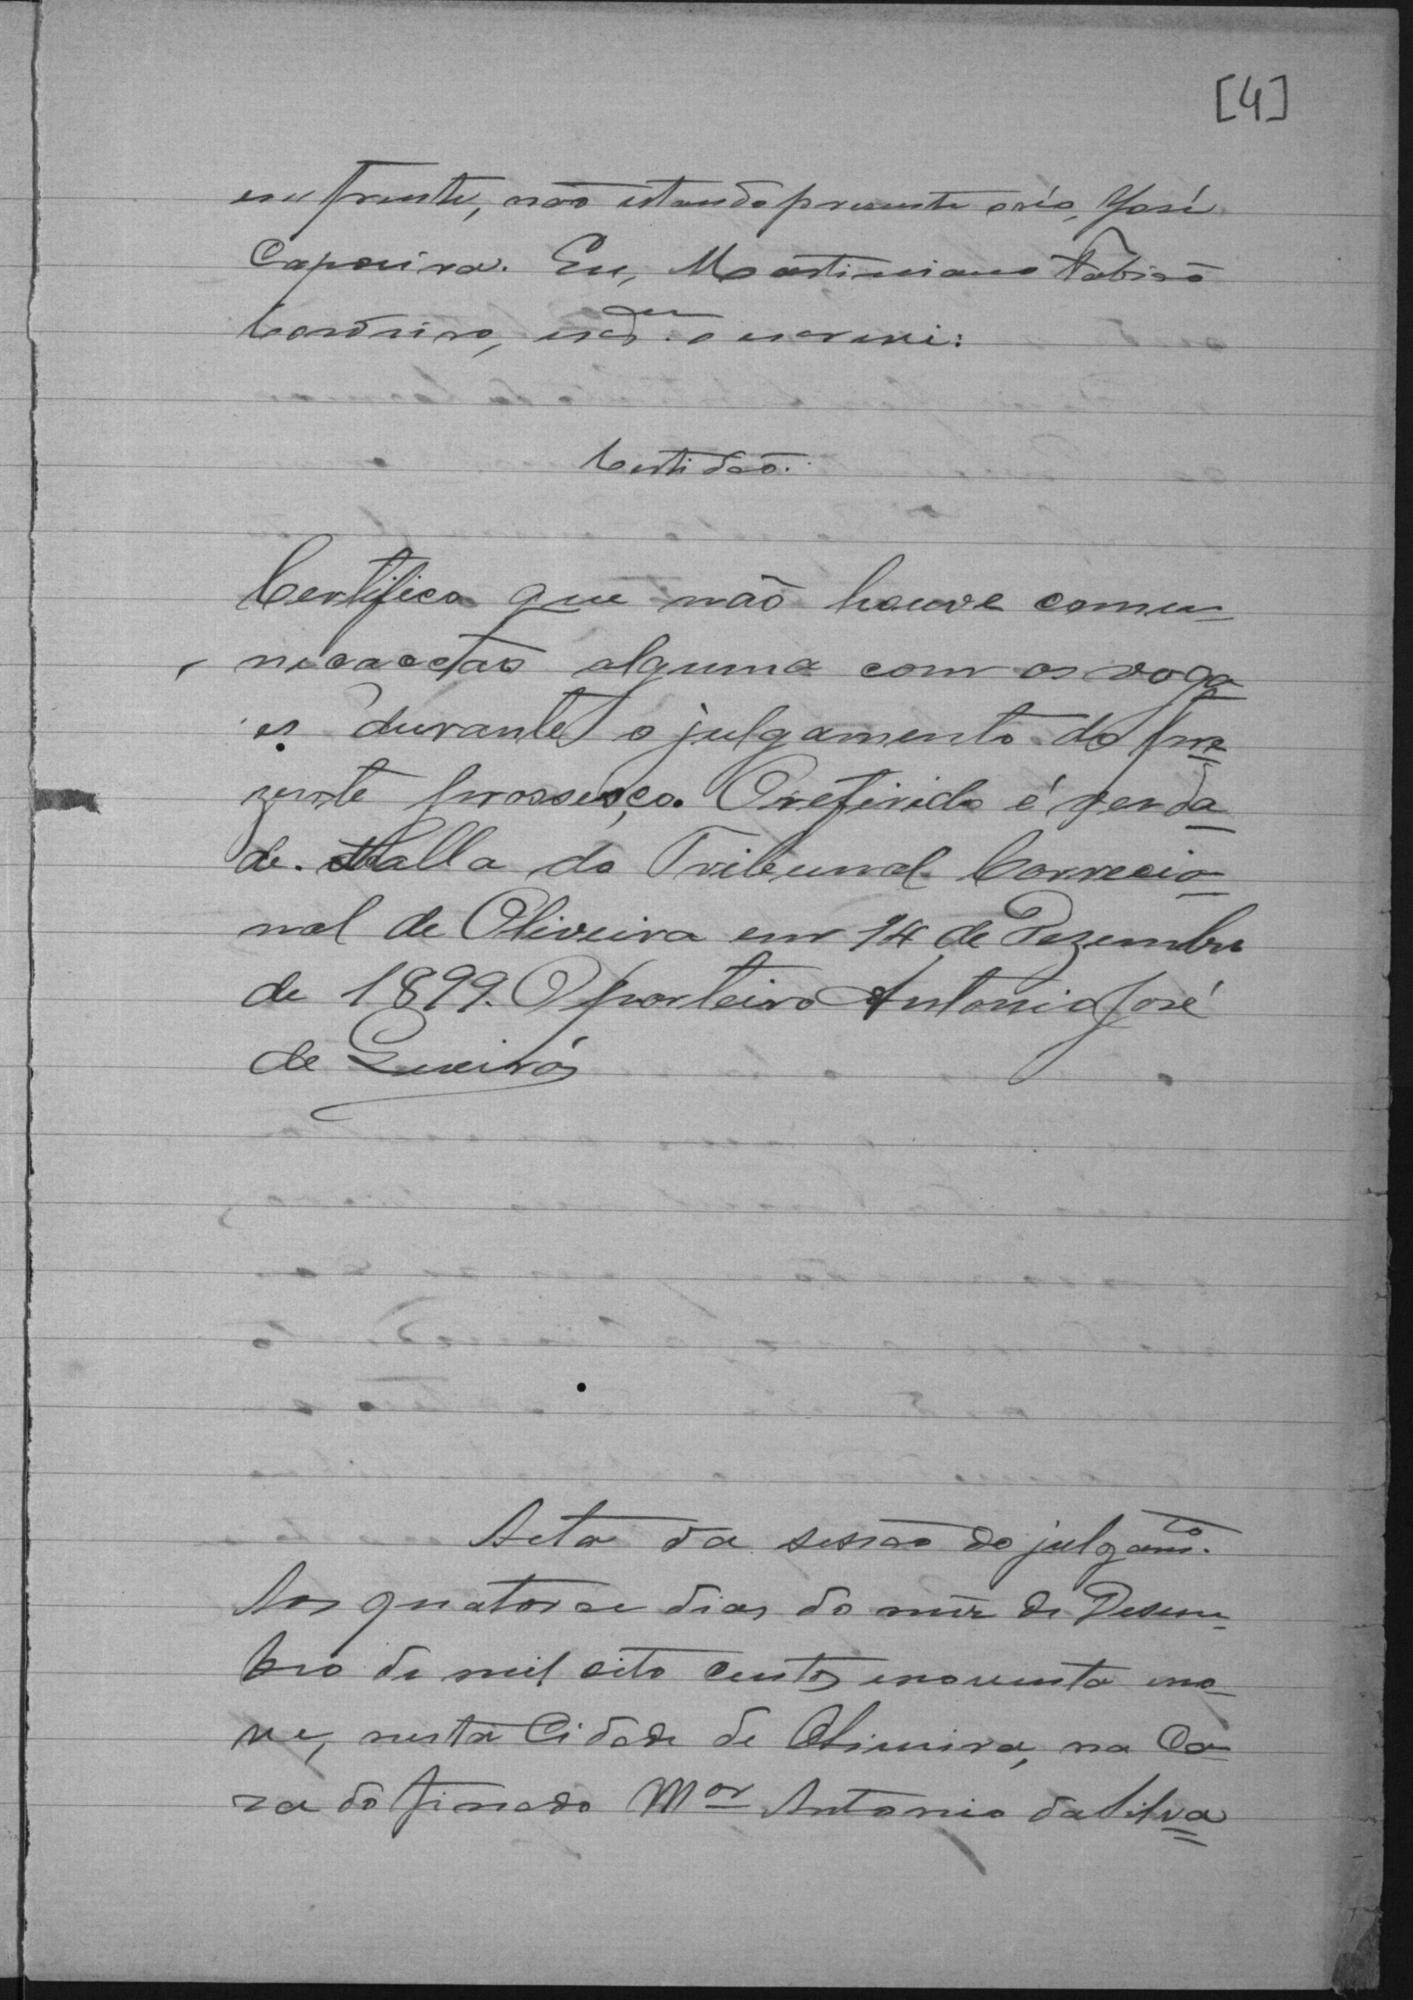 [4]
em frente, não estando presente o réo, José
Capoeira. Eu, Martiniano Fabião
Cordeiro, escr.am o escrevi:
Certidão.
Certifico que não houve comu-
nicacção alguma com os voga
es durante o julgamento do pre-
zente prossesço. O refirido é verda
de. Salla do Tribunal Correcio-
nal de Oliveira em 14 de Dezembro
de 1899. O porteiro Antonio José
de Queirós
Acta da sessão do julgamto.
Aos quatorse dias do mez de Desem-
bro de mil oito centos e noventa e no-
ve, nesta Cidade de Oliveira, na Ca-
za do finado Mor Antonio da Silva